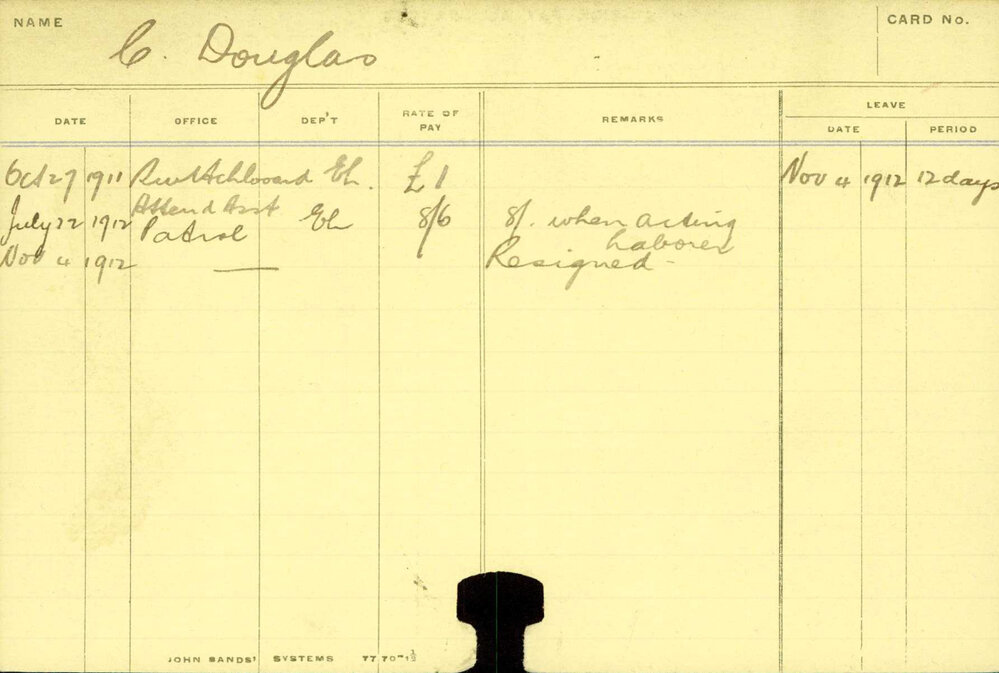 NAME C. Douglas CARD No.
DATE OFFICE DEP'T RATE OF PAY REMARKS LEAVE
DATE PERIOD
Oct 27 1911 El. £1 Nov 4 1912 12 days
Attend Asst
July 22 1912 Patrol El 8/6 8/. when acting
laborer
Nov 4 1912 — Resigned -
JOHN SANDS' SYSTEMS 77 70